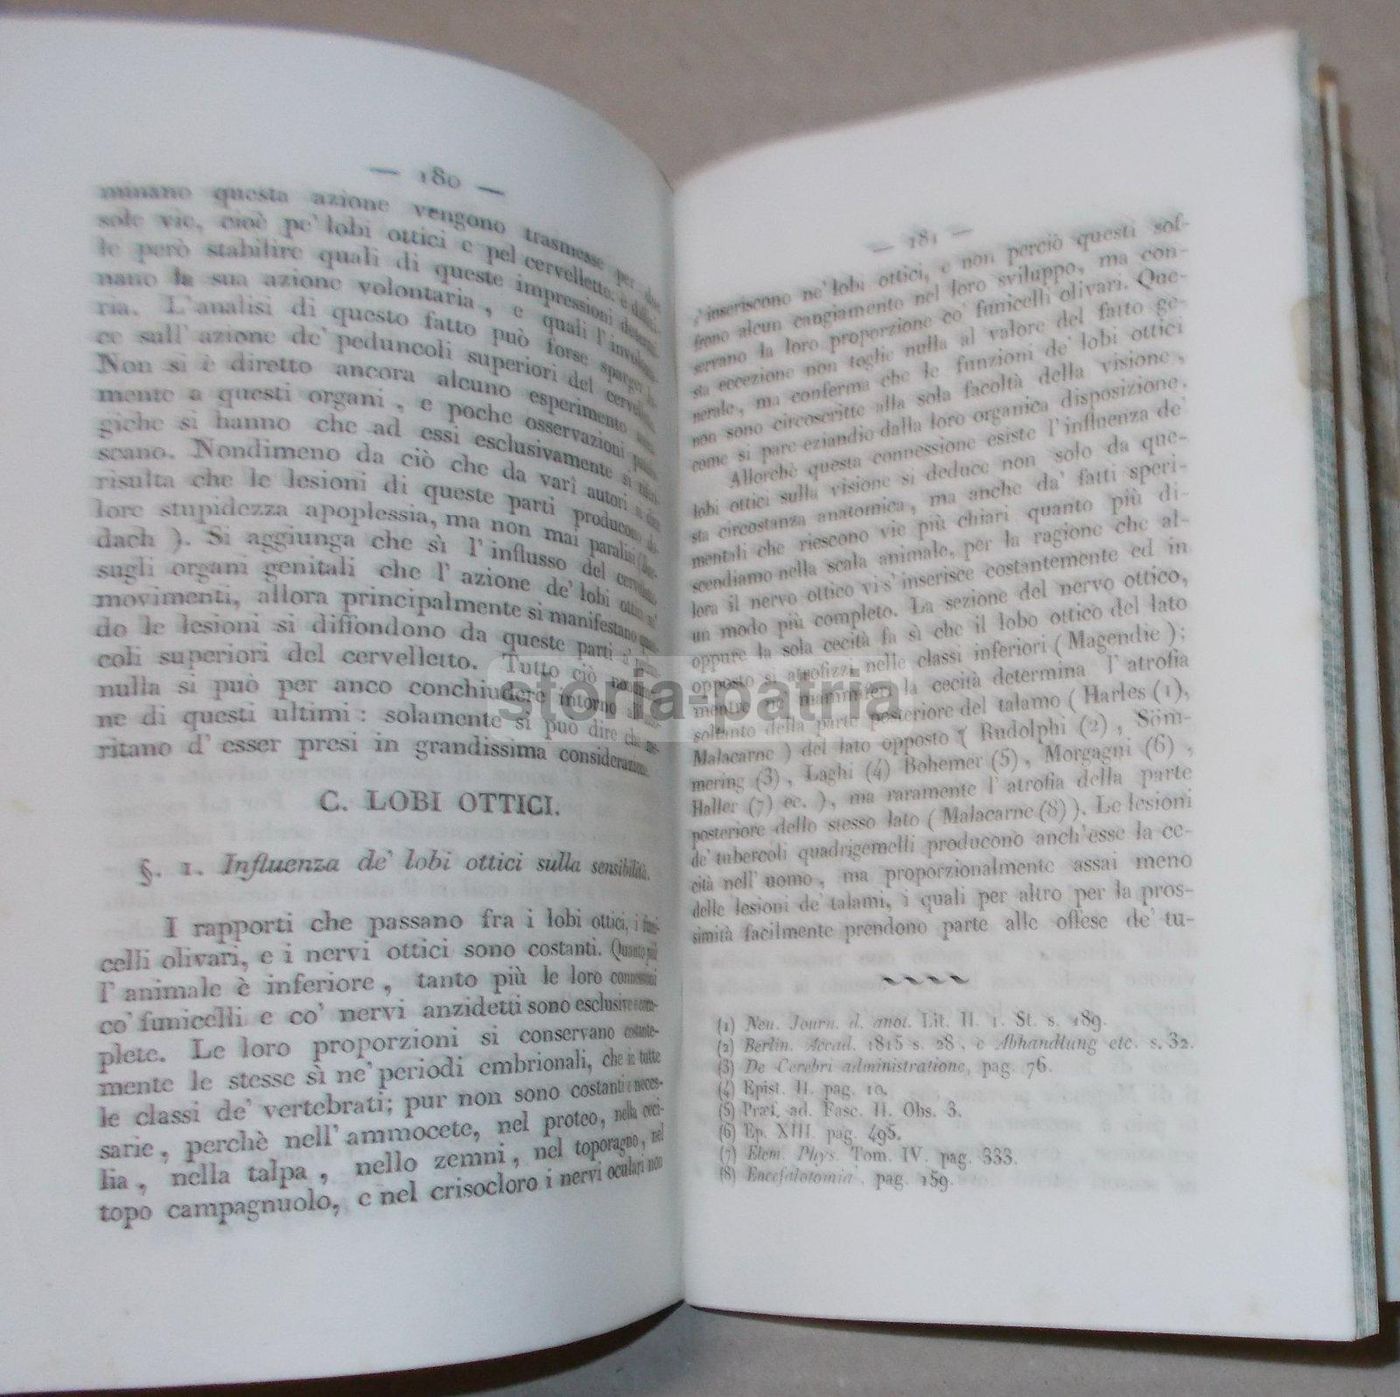 — 180 —
minano questa azione vengono trasmesse per due
sole vie, cioè pe' lobi ottici e pel cervelletto: è diffici-
le però stabilire quali di queste impressioni determi-
nano la sua azione volontaria, e quali l'involonta-
ria. L'analisi di questo fatto può forse sparger lu-
ce sull'azione de' peduncoli superiori del cervelletto.
Non si è diretto ancora alcuno esperimento
mente a questi organi, e poche osservazioni
giche si hanno che ad essi esclusivamente si
scano. Nondimeno da ciò che da varî autori
risulta che le lesioni di queste parti producono
lore stupidezza apoplessia, ma non mai paralisi (Bur-
dach). Si aggiunga che sì l'influsso del cervelletto
sugli organi genitali che l'azione de' lobi ottici
movimenti, allora principalmente si manifestano
do le lesioni si diffondono da queste parti a'
coli superiori del cervelletto. Tutto ciò
nulla si può per anco conchiudere intorno
ne di questi ultimi: solamente si può dire che me-
ritano d'esser presi in grandissima considerazione.
C. LOBI OTTICI.
§. 1. Influenza de' lobi ottici sulla sensibilità.
I rapporti che passano fra i lobi ottici, i funi-
celli olivari, e i nervi ottici sono costanti. Quanto più
l'animale è inferiore, tanto più le loro connessioni
co' funicelli e co' nervi anzidetti sono esclusive e com-
plete. Le loro proporzioni si conservano costante-
mente le stesse sì ne' periodi embrionali, che in tutte
le classi de' vertebrati; pur non sono costanti e neces-
sarie, perchè nell'ammocete, nel proteo, nella ceci-
lia, nella talpa, nello zemni, nel toporagno, nel
topo campagnuolo, e nel crisocloro i nervi oculari non
— 181 —
s'inseriscono ne' lobi ottici, e non perciò questi sof-
frono alcun cangiamento nel loro sviluppo, ma con-
servano la loro proporzione co' funicelli olivari. Que-
sta eccezione non toglie nulla al valore del fatto ge-
nerale, ma conferma che le funzioni de' lobi ottici
non sono circoscritte alla sola facoltà della visione,
come si pare eziandio dalla loro organica disposizione.
Allorchè questa connessione esiste l'influenza de'
lobi ottici sulla visione si deduce non solo da que-
sta circostanza anatomica, ma anche da' fatti speri-
mentali che riescono vie più chiari quanto più di-
scendiamo nella scala animale, per la ragione che al-
lora il nervo ottico vi s'inserisce costantemente ed in
un modo più completo. La sezione del nervo ottico,
oppure la sola cecità fa sì che il lobo ottico del lato
opposto si atrofizzi nelle classi inferiori (Magendie);
mentre ne' mammiferi la cecità determina l'atrofia
soltanto della parte posteriore del talamo (Harles (1),
Malacarne) del lato opposto (Rudolphi (2), Söm-
mering (3), Laghi (4) Bohemer (5), Morgagni (6),
Haller (7) ec.), ma raramente l'atrofia della parte
posteriore dello stesso lato (Malacarne (8)). Le lesioni
de' tubercoli quadrigemelli producono anch'esse la ce-
cità nell'uomo, ma proporzionalmente assai meno
delle lesioni de' talami, i quali per altro per la pros-
simità facilmente prendono parte alle offese de' tu-
(1) Neu. Journ. d. anol. Lit. II. 1. St. s. 189.
(2) Berlin. Accad. 1815 s. 28. e Abhandlung etc. s. 32.
(3) De Cerebri administratione, pag. 76.
(4) Epist. II. pag. 10.
(5) Præf. ad. Fasc. II. Obs. 3.
(6) Ep. XIII. pag. 495.
(7) Elem. Phys. Tom. IV. pag. 333.
(8) Encefalotomia, pag. 159.
storia-patria